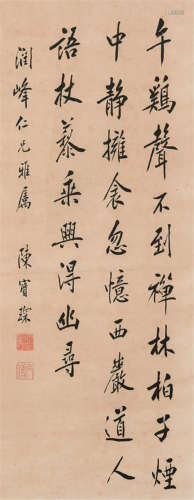 午鷄聲不到禪林柏子煙
中靜擁衾忽憶西巖道人
語杖藜乘興得幽尋
潤峰仁兄雅屬
陳寳琛